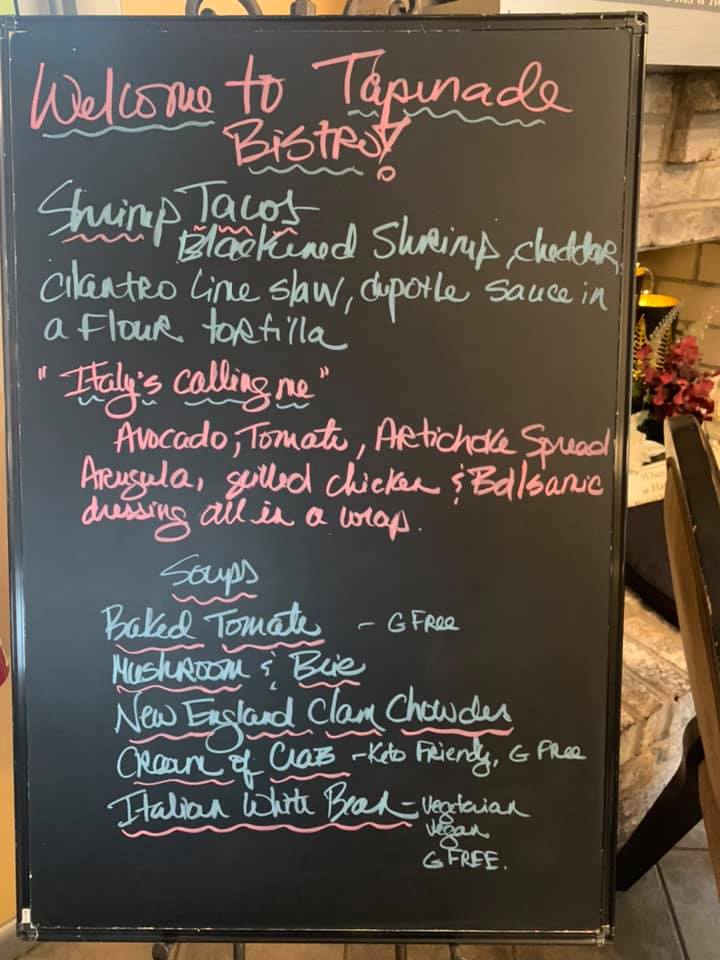 Welcome to Tapenade
Bistro!
Shrimp Tacos
Blackined Shrimp, cheddar,
cilantro Lime slaw, chipotle sauce in
a Flour tortilla
"Italy's calling me"
Avocado, Tomato, Artichoke Spread
Arugula, grilled chicken & Balsamic
dressing all in a wrap.
Soups
Baked Tomato - G Free
Mushroom & Brie
New England Clam Chowder
Cream of Crab - Keto Friendly, G Free
Italian White Bean - Vegetarian
Vegan
G FREE.